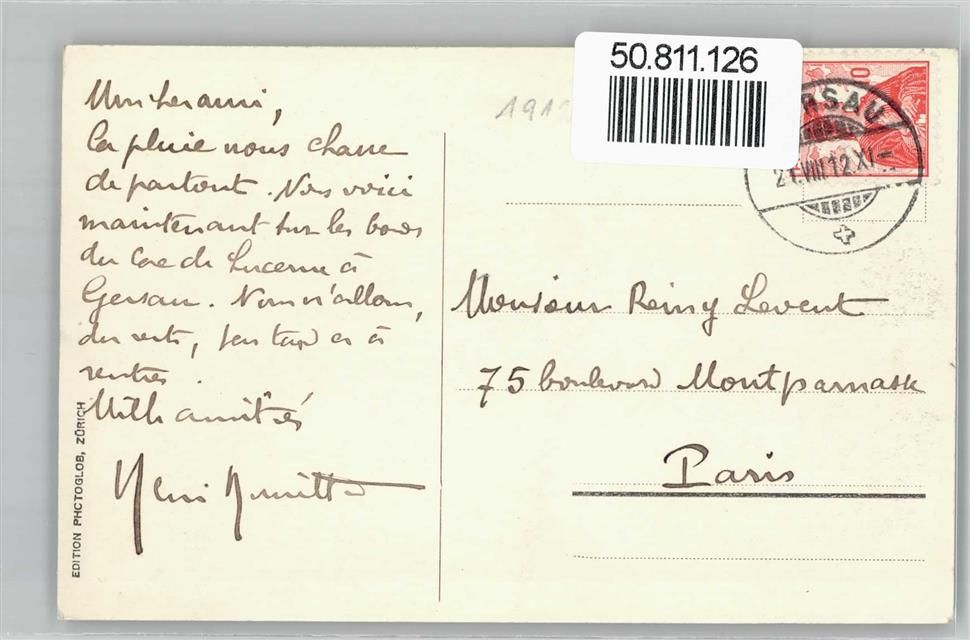 50.811.126
1912
RSAU
21.VIII.12.XI-
Mon cher ami,
la pluie nous chasse
de partout. Nous voici
maintenant sur les bords
du Lac de Lucerne à
Gersau. Nous n'allons,
du reste, pas tarder à
rentrer.
Mille amitiés
Henri
Monsieur Remy Levent
75 boulevard Montparnasse
Paris
EDITION PHOTOGLOB, ZÜRICH